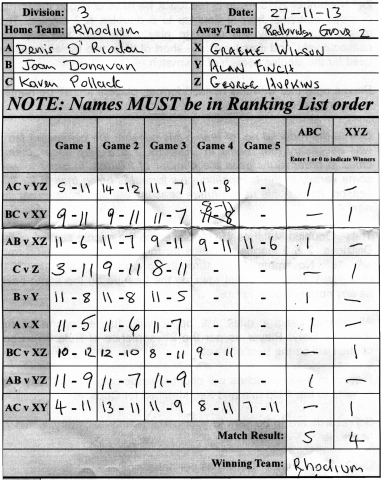 Division: 3 Date: 27-11-13
Home Team: Rhodium Away Team: Redbridge Grove 2
A Denis O'Riodan X GRAEME WILSON
B Joan Donavan Y ALAN FINCH
C Karen Pollack Z GEORGE HOPKINS
NOTE: Names MUST be in Ranking List order
ABC XYZ
Game 1 Game 2 Game 3 Game 4 Game 5
Enter 1 or 0 to indicate Winners
AC v YZ 5-11 14-12 11-7 11-8 - 1 -
BC v XY 9-11 9-11 11-7 8-11 - - 1
AB v XZ 11-6 11-7 9-11 9-11 11-6 1 -
C v Z 3-11 9-11 8-11 - - - 1
B v Y 11-8 11-8 11-5 - - 1 -
A v X 11-5 11-6 11-7 - - 1 -
BC v XZ 10-12 12-10 8-11 9-11 - - 1
AB v YZ 11-9 11-7 11-9 - - 1 -
AC v XY 4-11 13-11 11-9 8-11 7-11 - 1
Match Result: 5 4
Winning Team: Rhodium